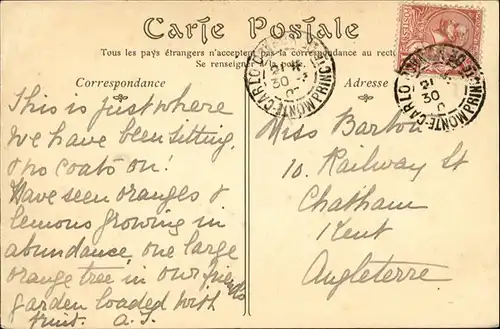 Carte Postale
Tous les pays étrangers n'acceptent pas la correspondance au recto
Se renseigner à la poste
Correspondance
Adresse
This is just where
we have been sitting,
& no coats on!
Have seen oranges &
lemons growing in
abundance, one large
orange tree in our friends
garden loaded with
fruit. A.J.
Miss Barton
10. Railway St
Chatham
Kent
Angleterre
MONTE-CARLO
21
30
MONTE-CARLO
21
30